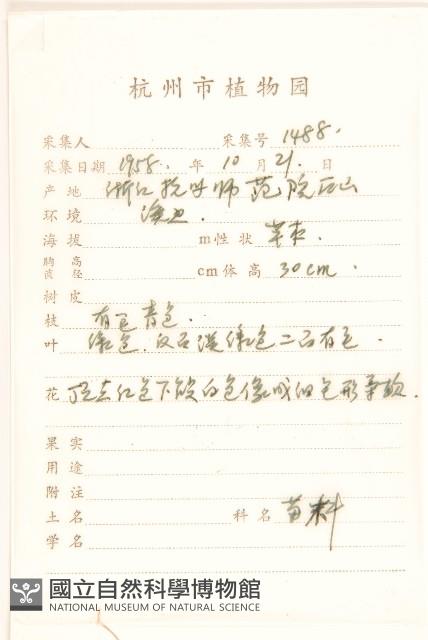 杭州市植物园
采集人 采集号 1488.
采集日期 1958. 年 10 月 21. 日
产地 浙江 师范院后山
环境
海拔 m性状 草本.
胸高直径 cm体高 30cm.
树皮
枝 有毛青色.
叶 绿色.
花 顶 红色下 白色
果实
用途
附注
土名 科名 菊科
学名
國立自然科學博物館
NATIONAL MUSEUM OF NATURAL SCIENCE